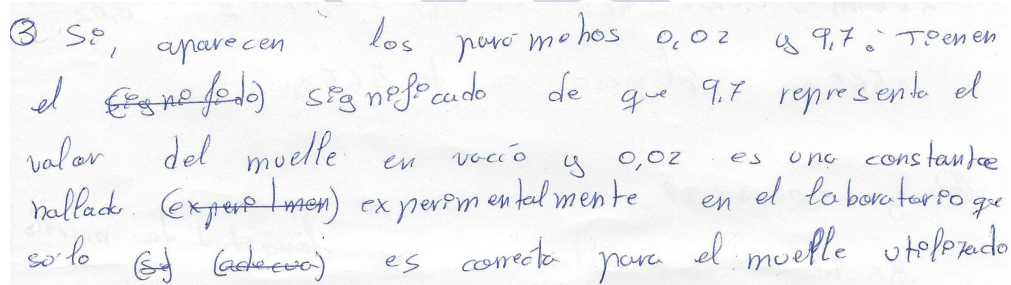 ③ Si, aparecen los parámetros 0,02 y 9,7. Tienen
el (significado) significado de que 9.7 representa el
valor del muelle en vacio y 0,02 es una constante
hallada (experimen) experimentalmente en el laboratorio que
solo (si) (adecua) es correcta para el muelle utilizado